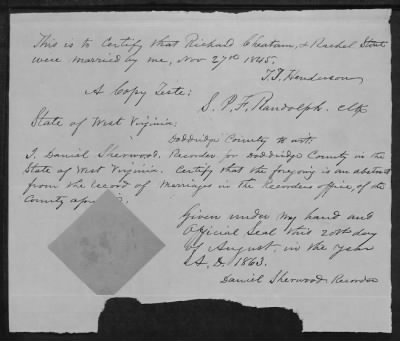 This is to Certify that Richard Cheatam, & Rachel Stout
were married by me, Nov 27th 1845.
Henderson
A Copy Teste;
S. P. F. Randolph. Clk
State of West Virginia;
Doddridge County to wit.
I, Daniel Sherwood. Recorder for Doddridge County in the
State of West Virginia. Certify that the foregoing is an abstract
from the record of Marriages in the Recorders office, of the
County
Given under my hand and
Official Seal this 20th day
of August. in the year
A. D. 1863.
Daniel Sherwood Recorder